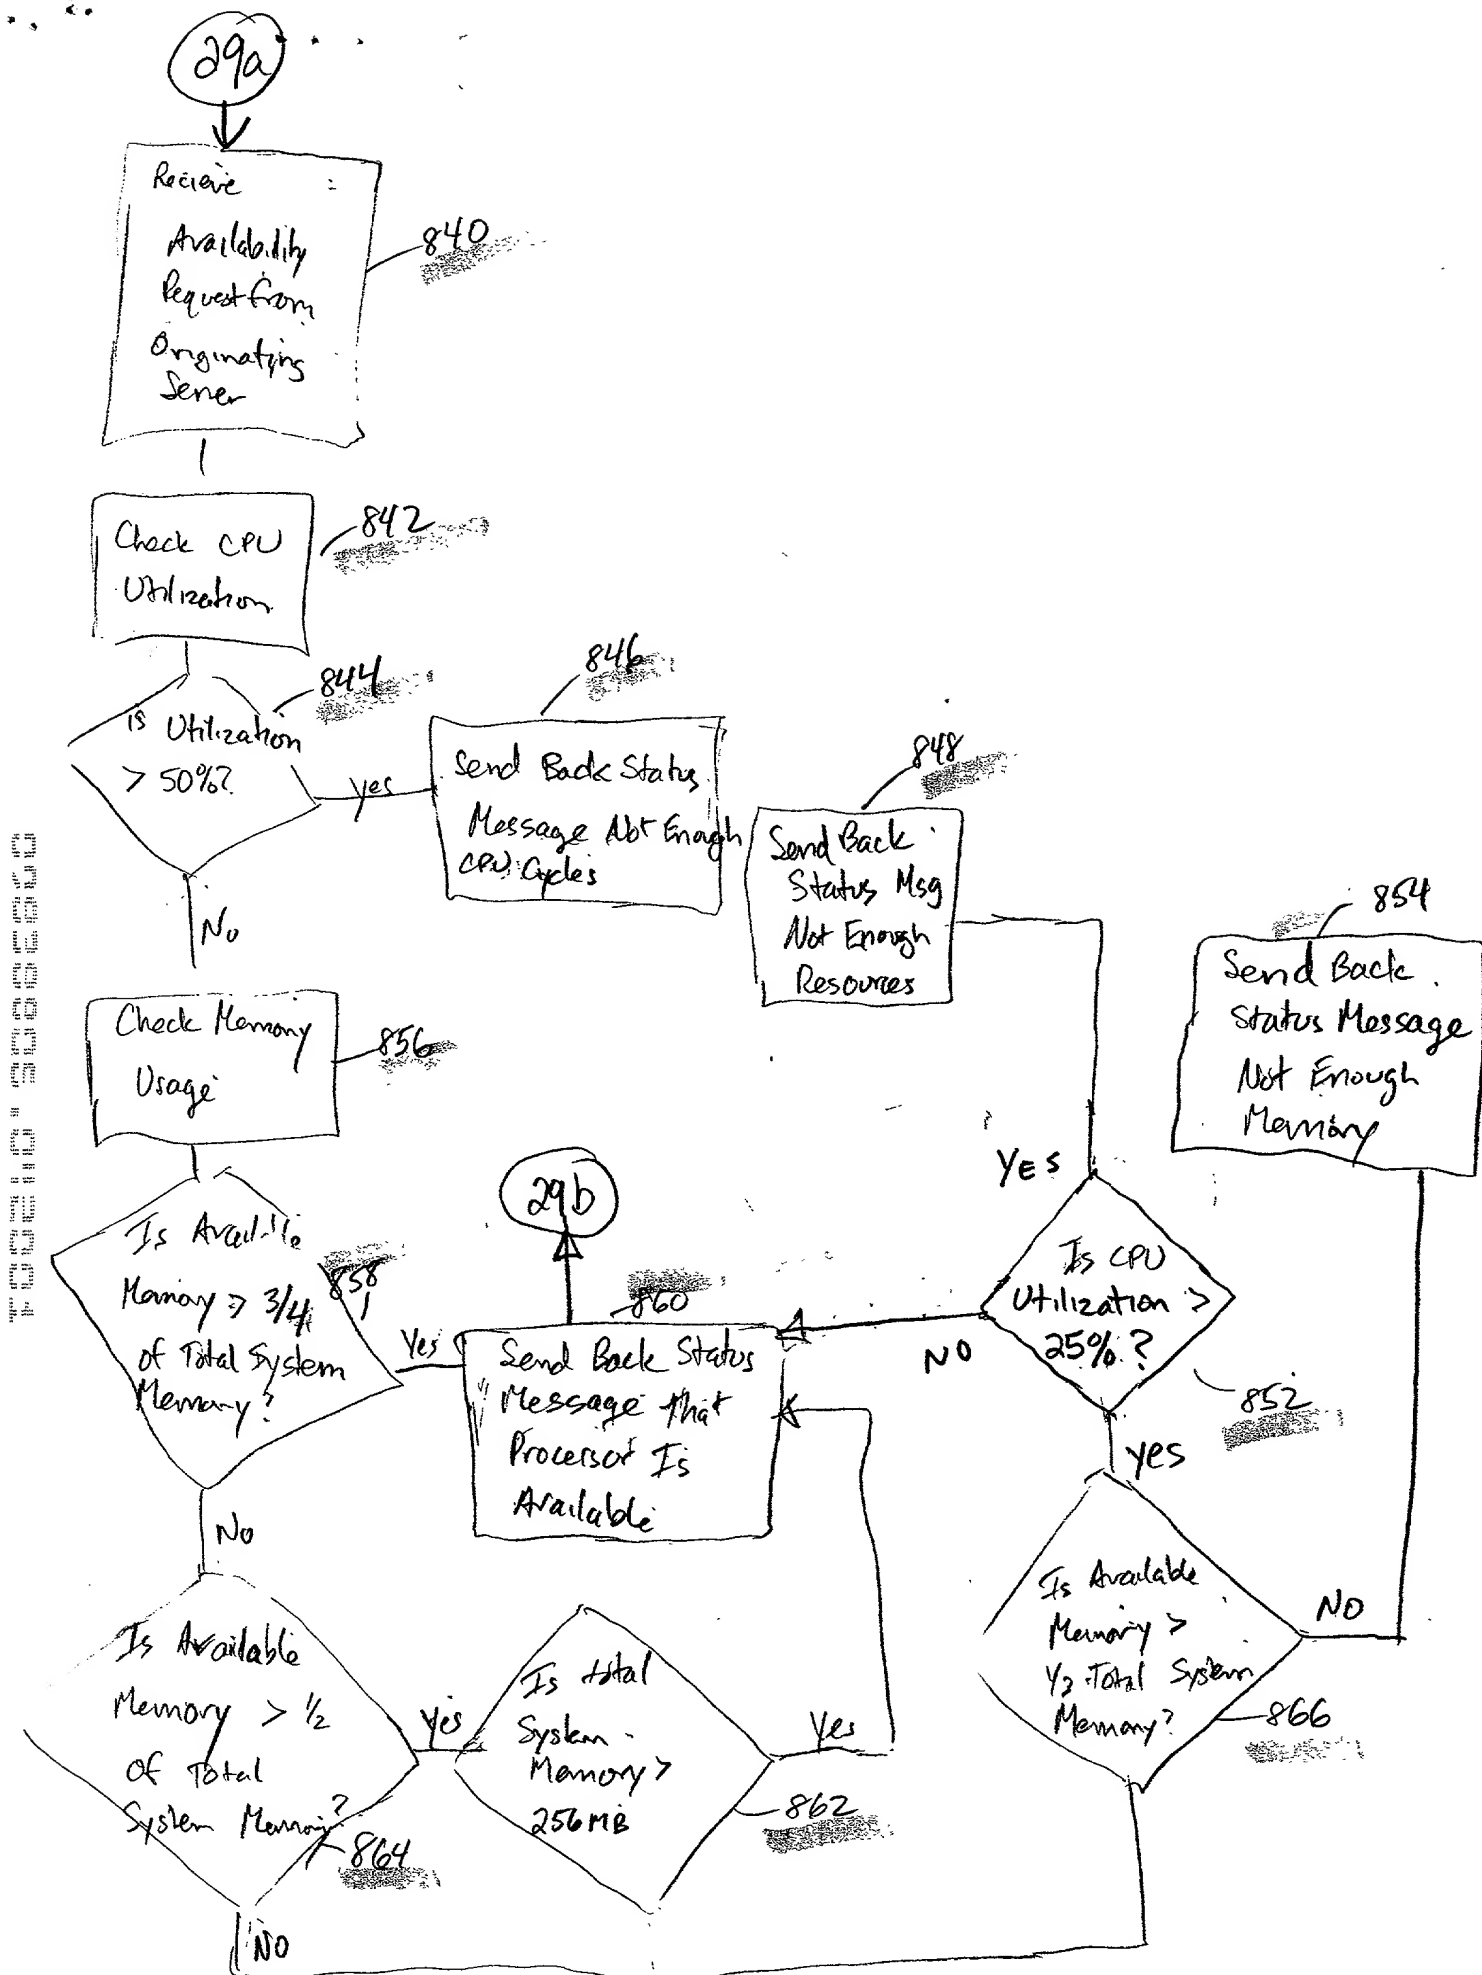 29a
Recieve
Availability
Request from
Originating
Server
840
Check CPU
Utilization
842
is Utilization
> 50%?
844
yes
No
Send Back Status
Message Not Enough
CPU Cycles
846
Send Back
Status Msg
Not Enough
Resources
848
Send Back
Status Message
Not Enough
Memory
854
Check Memory
Usage
856
Is Available
Memory > 3/4
of Total System
Memory?
858
Yes
No
29b
860
Send Back Status
Message that
Processor Is
Available
YES
Is CPU
Utilization >
25%?
852
NO
yes
Is Available
Memory >
Total System
Memory?
866
NO
Is Available
Memory > 1/2
of Total
System Memory?
864
yes
NO
Is total
System
Memory >
256 MB
862
yes